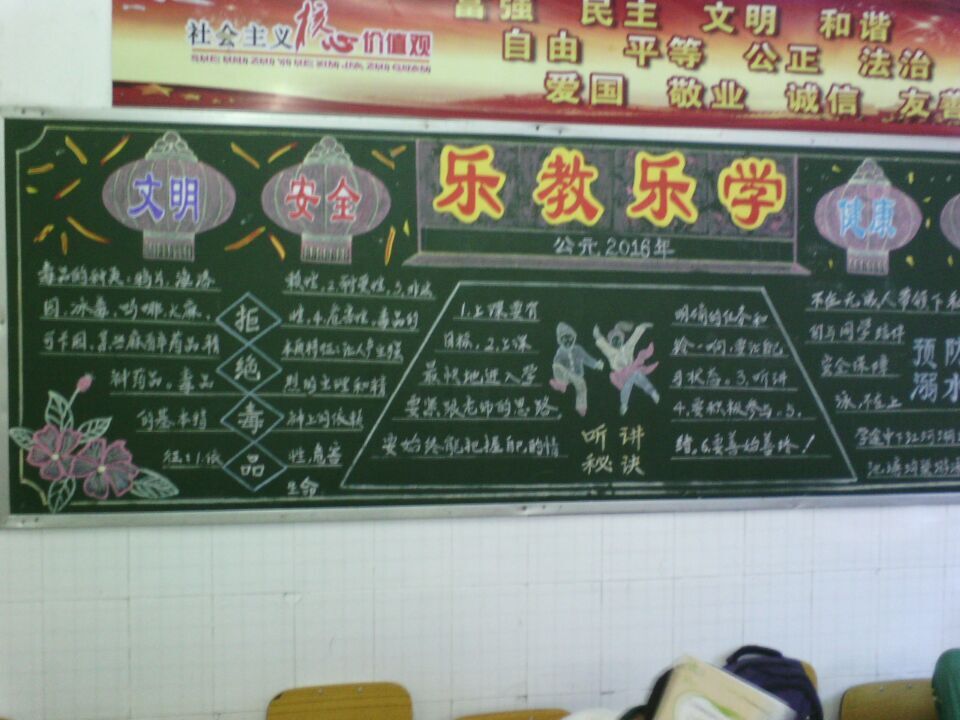 社会主义核心价值观
SHE HUI ZHU YI HE XIN JIA ZHI GUAN
富强 民主 文明 和谐
自由 平等 公正 法治
爱国 敬业 诚信 友善
文明
安全
乐教乐学
公元2016年
健康
毒品的种类:鸦片、海洛
因、冰毒、吗啡、大麻、
可卡因,
神药品。毒品
的基本特
征:1.依
拒绝毒品
赖性,2.耐受性,3.非法
性,4.危害性。毒品的
本质特征:让人产生强
烈的生理和精
神上的依赖
性,危害
生命
1.上课要有
目标,2.上课
最快地进入学
要紧跟老师的思路
要始终能把握自己的情
听讲
秘诀
明确的任务和
习状态。3.听讲
4.要积极参与。5.
绪,6.要善始善终!
不在无成人带领下私
自与同学结伴
安全保障
泳,不在上
预防
溺水
学途中下江河湖
池塘